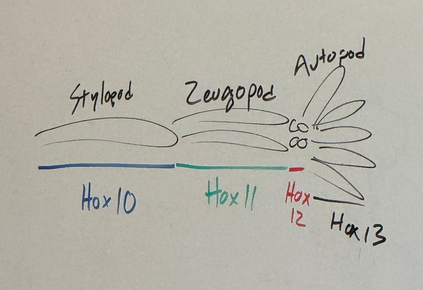 Stylopod
Zeugopod
Autopod
Hox 10
Hox 11
Hox
12
Hox 13